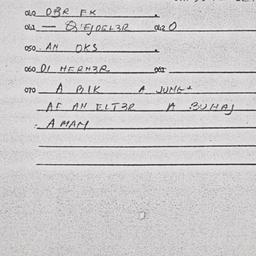 010 OBR FK
011 — Q'EJDEL3R 012 O
050 AN OKS
060 DI HERN3R 061
070 A BIK A JUNG+
AF AN ELT3R A BUHAJ
A MAM